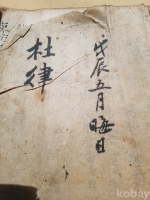 戊辰五月晦日
杜律
kobay